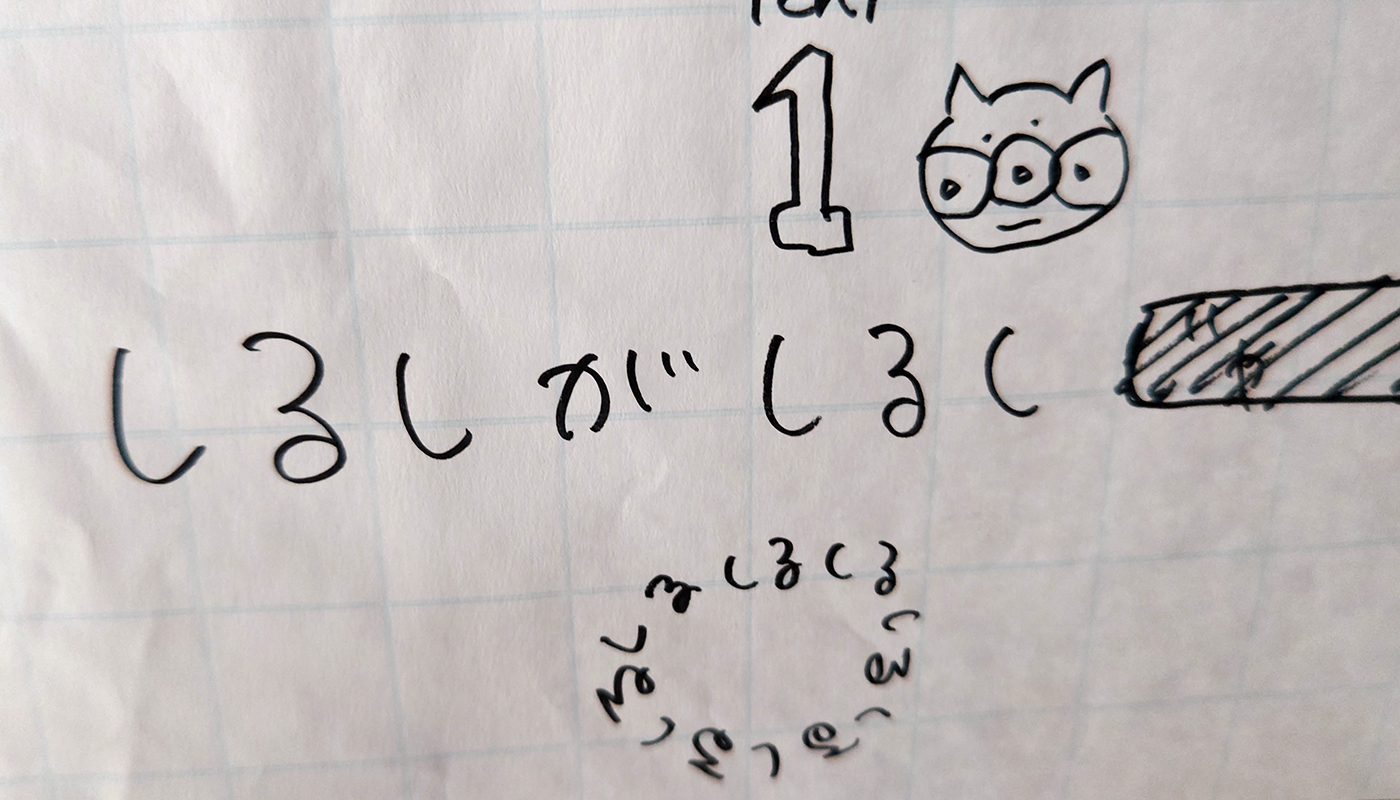 1
しるしがしるし
しるしるしるしるしるしるしる